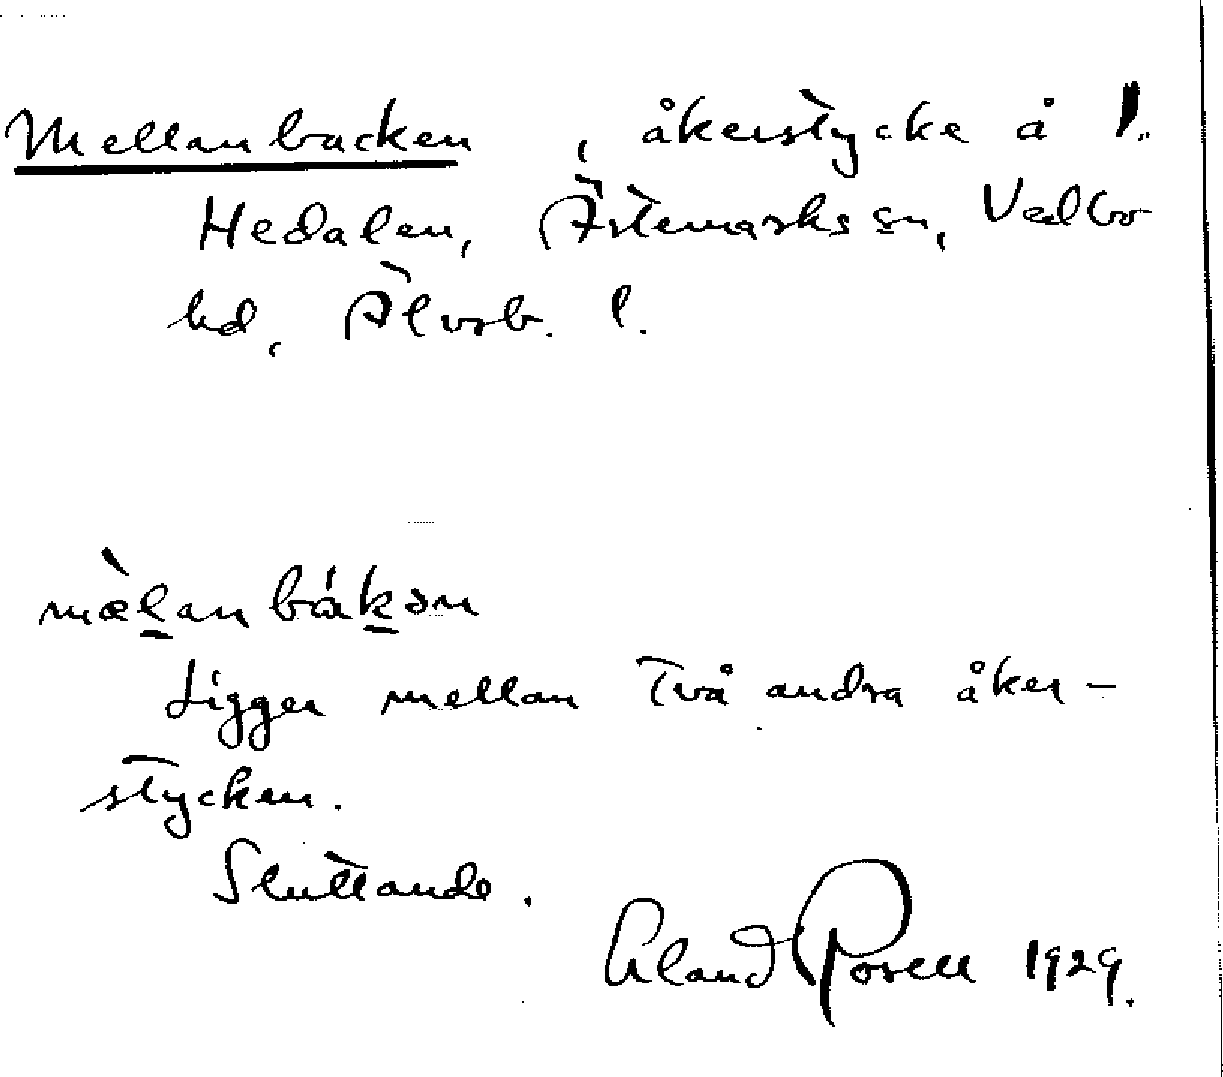 Mellanbacken , åkerstycke å 1.
Hedalen, Ärtemarks sn, Vedbo
hd, Älvsb. l.
mæ̀lan bák̲ən
Ligger mellan två andra åker-
stycken.
Sluttande.
Erland Rosell 1929.